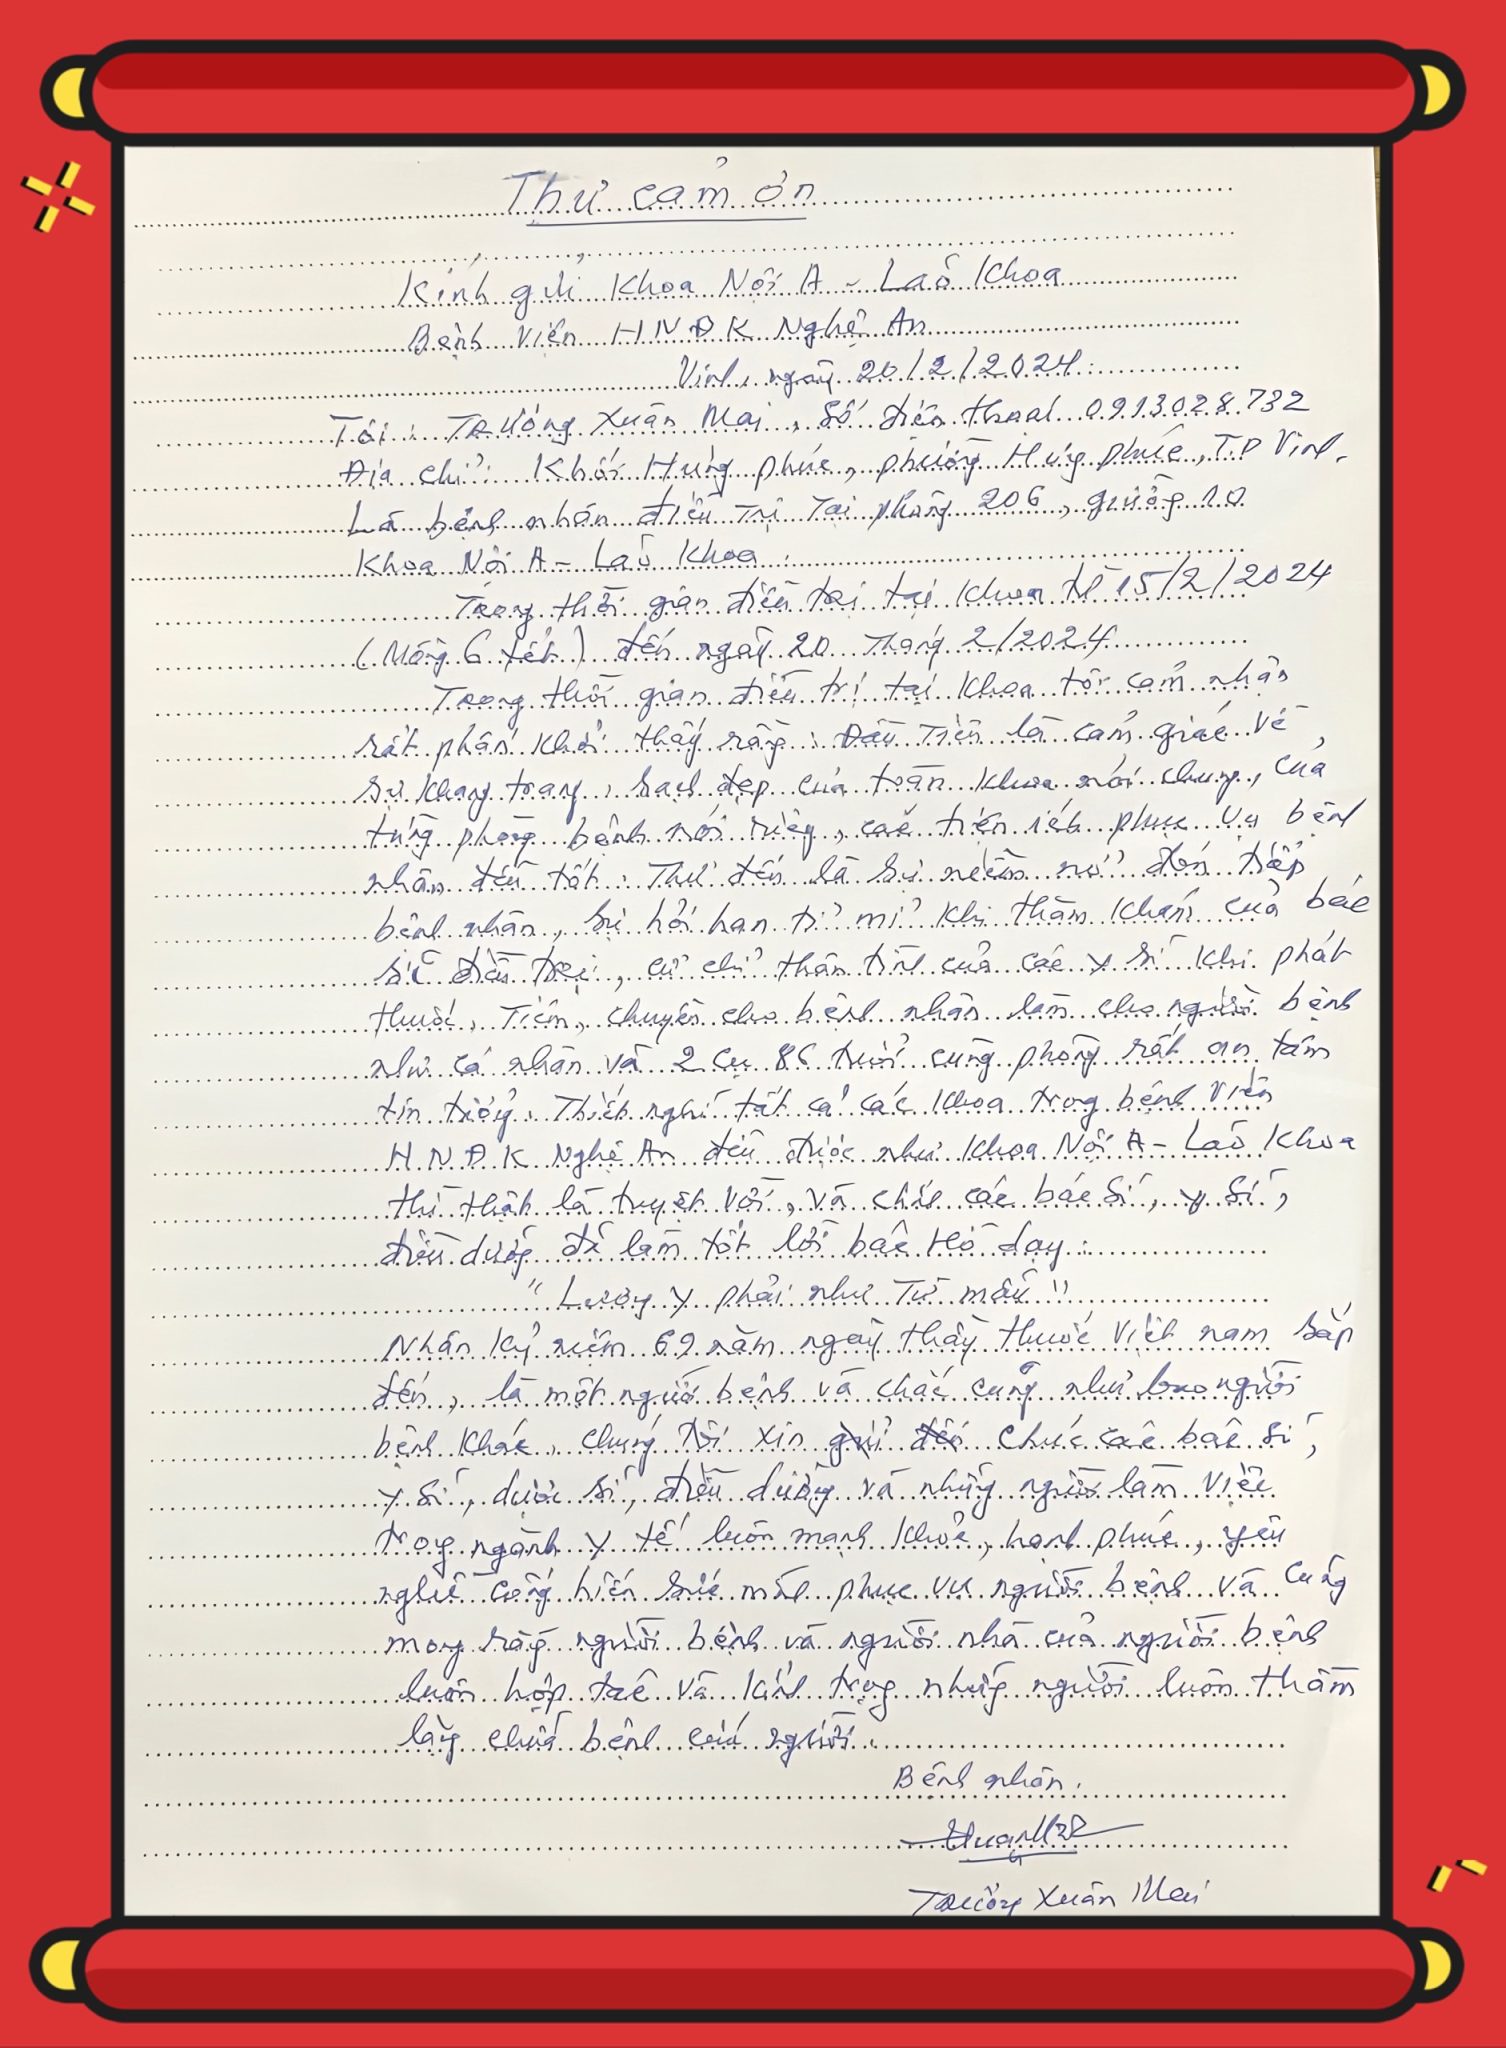 Thư cảm ơn
Kính gửi Khoa Nội A - Lão Khoa
Bệnh Viện HNĐK Nghệ An
Vinh, ngày 20/2/2024.
Tôi: Trương Xuân Mai, số điện thoại 0913.028.732
Địa chỉ: Khối Hưng phúc, phường Hưng phúc, T.P Vinh.
Là bệnh nhân điều Trị Tại phòng 206, giường 10
Khoa Nội A - Lão Khoa.
Trong thời gian điều trị tại khoa từ 15/2/2024
(Mồng 6 tết) đến ngày 20 Tháng 2/2024
Trong thời gian điều trị tại khoa tôi cảm nhận
rất phấn khởi thấy rằng: Đầu Tiên là cảm giác về
sự khang trang, sạch đẹp của toàn khoa nói chung, của
từng phòng bệnh nói riêng, các tiện ích phục vụ bệnh
nhân đều tốt. Thứ đến là sự niềm nở đón tiếp
bệnh nhân, sự hỏi han tỉ mỉ khi thăm khám của bác
sĩ điều trị, cử chỉ thân tình của các y sĩ khi phát
thuốc, Tiêm, chuyền cho bệnh nhân làm cho người bệnh
như cá nhân và 2 cụ 86 tuổi cùng phòng rất an tâm
tin tưởng. Thiết nghĩ tất cả các khoa trong bệnh viện
HNĐK Nghệ An đều được như khoa Nội A - Lão Khoa
thì thật là tuyệt vời, và chắc các bác sĩ, y sĩ,
điều dưỡng đã làm tốt lời bác Hồ dạy:
"Lương y phải như Từ mẫu"
Nhân kỷ niệm 69 năm ngày thầy thuốc Việt nam sắp
đến, là một người bệnh và chắc cũng như bao người
bệnh khác, chúng tôi xin gửi đến chúc các bác sĩ,
y sĩ, dược sĩ, điều dưỡng và những người làm việc
trong ngành y tế luôn mạnh khỏe, hạnh phúc, yêu
nghề cống hiến sức mình phục vụ người bệnh và cũng
mong rằng người bệnh và người nhà của người bệnh
luôn hợp tác và kính trọng những người luôn thầm
lặng chữa bệnh cứu người.
Bệnh nhân.
Trương Xuân Mai